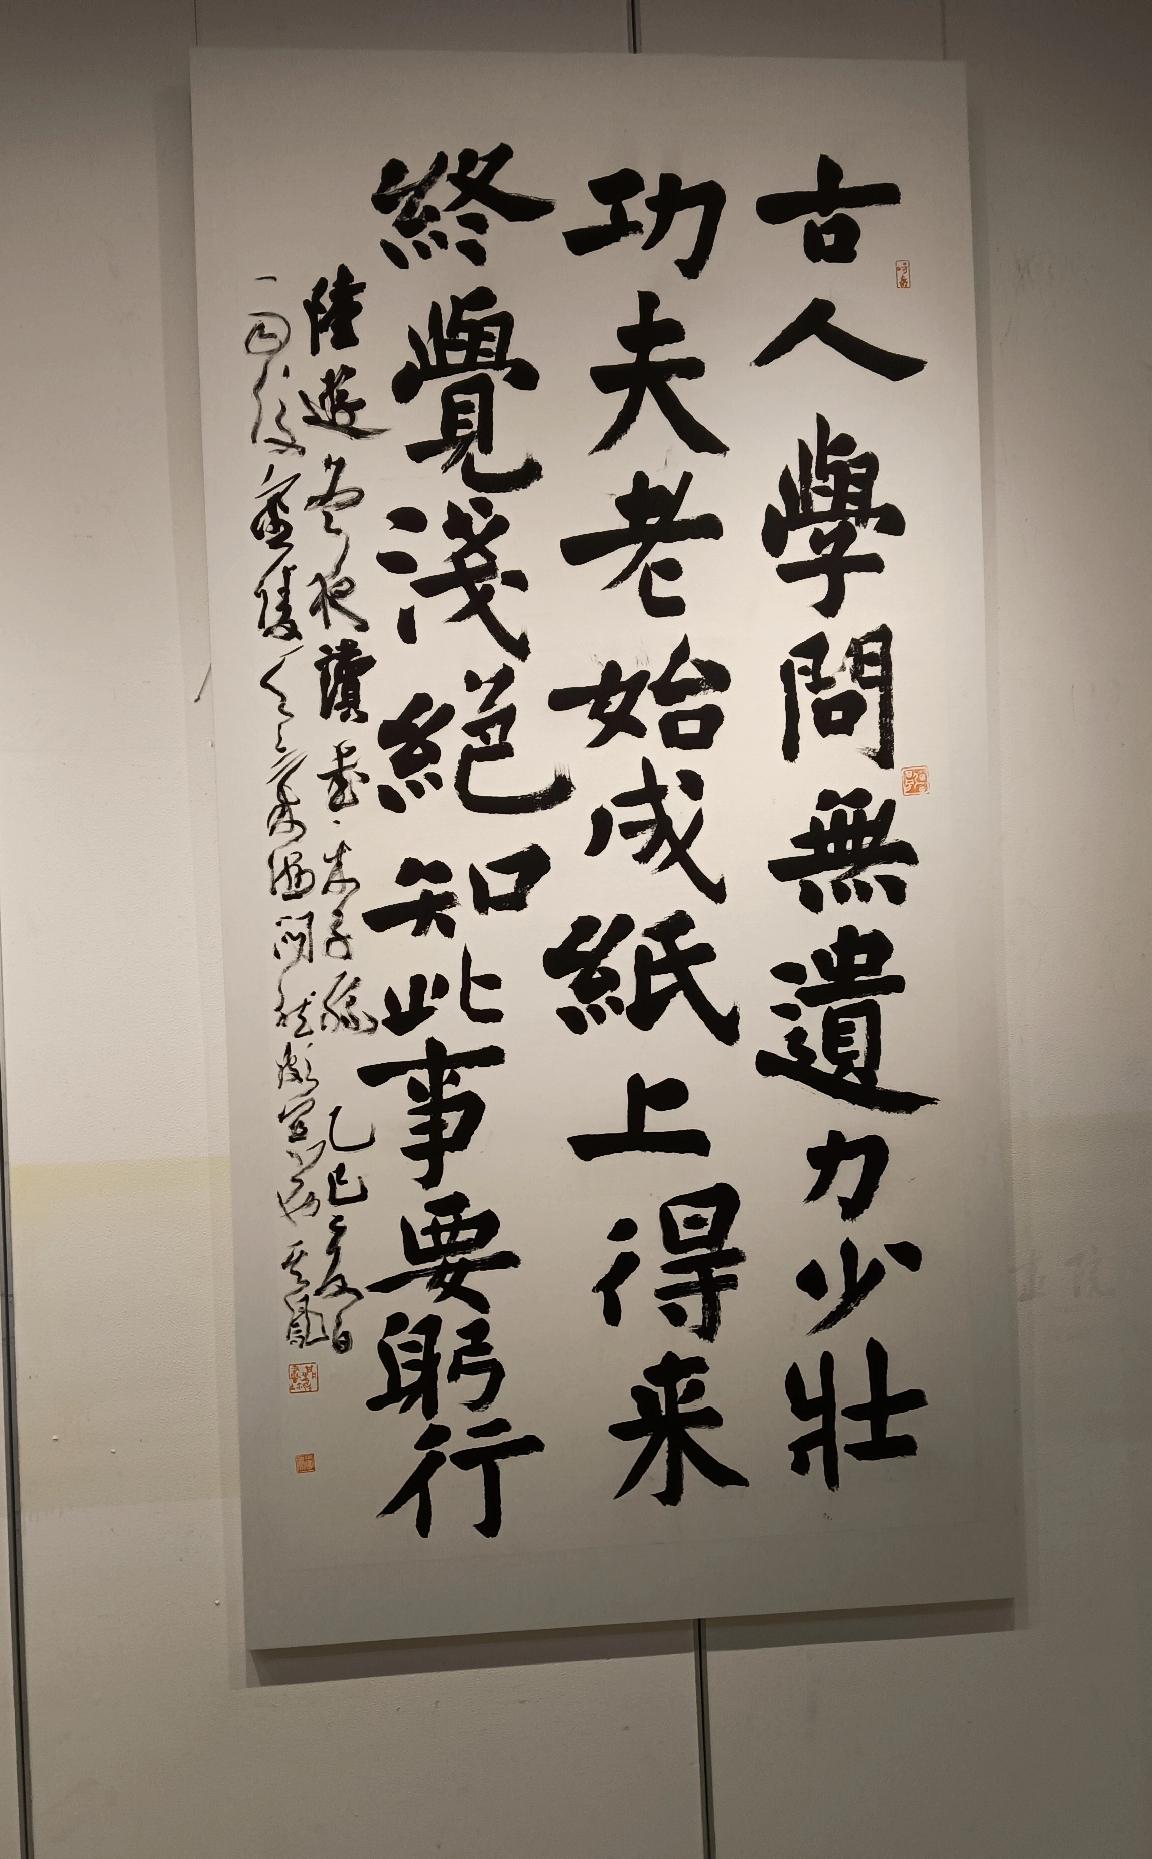 古人學問無遺力少壯
功夫老始成紙上得来
終覺淺絕知此事要躬行
陸遊冬夜讀書示子聿 乙巳之夏日